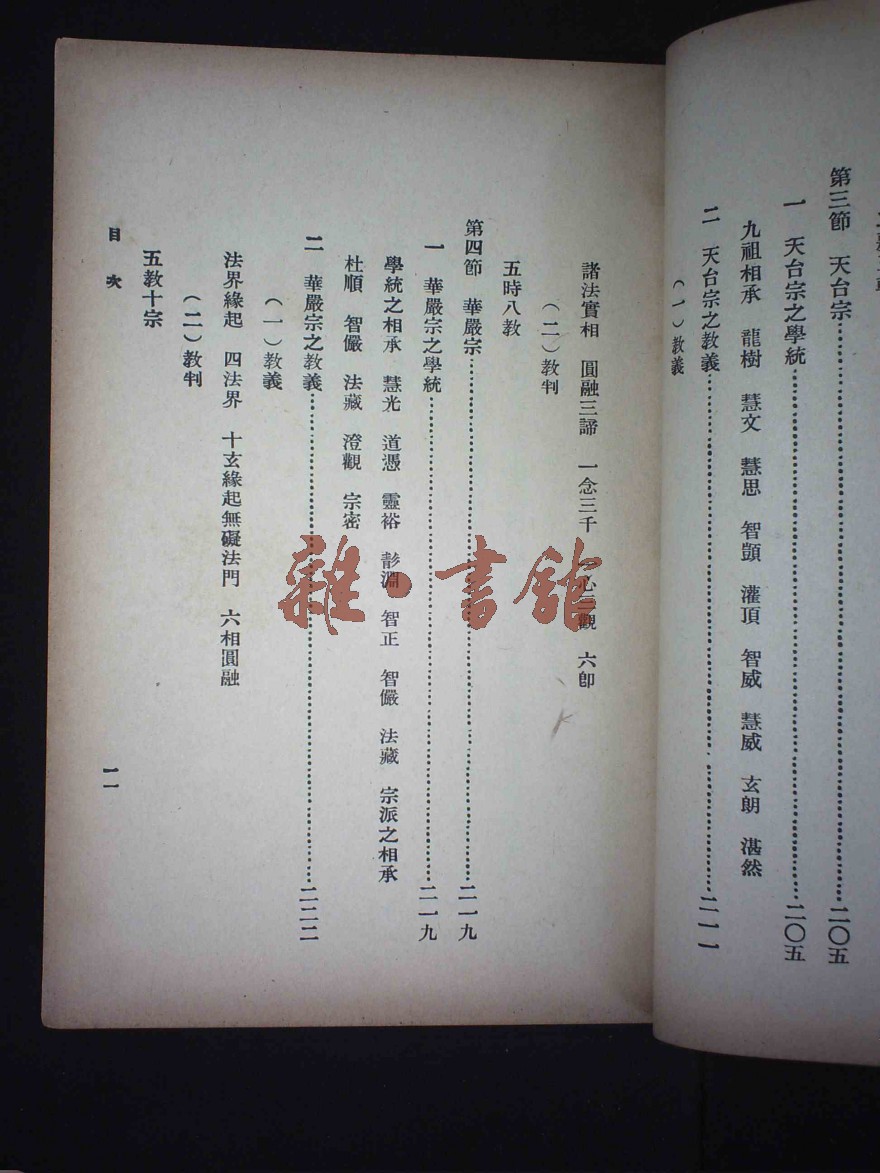 第三節　天台宗……二〇五
一　天台宗之學統……二〇五
九祖相承　龍樹　慧文　慧思　智顗　灌頂　智威　慧威　玄朗　湛然
二　天台宗之教義……二一一
（一）教義
諸法實相　圓融三諦　一念三千　一心三觀　六卽
（二）教判
五時八教
第四節　華嚴宗……二一九
一　華嚴宗之學統……二一九
學統之相承　慧光　道憑　靈裕　彭淵　智正　智儼　法藏　宗派之相承
杜順　智儼　法藏　澄觀　宗密
二　華嚴宗之教義……二二二
（一）教義
法界緣起　四法界　十玄緣起無礙法門　六相圓融
（二）教判
五教十宗
目次
一一
雜·書館